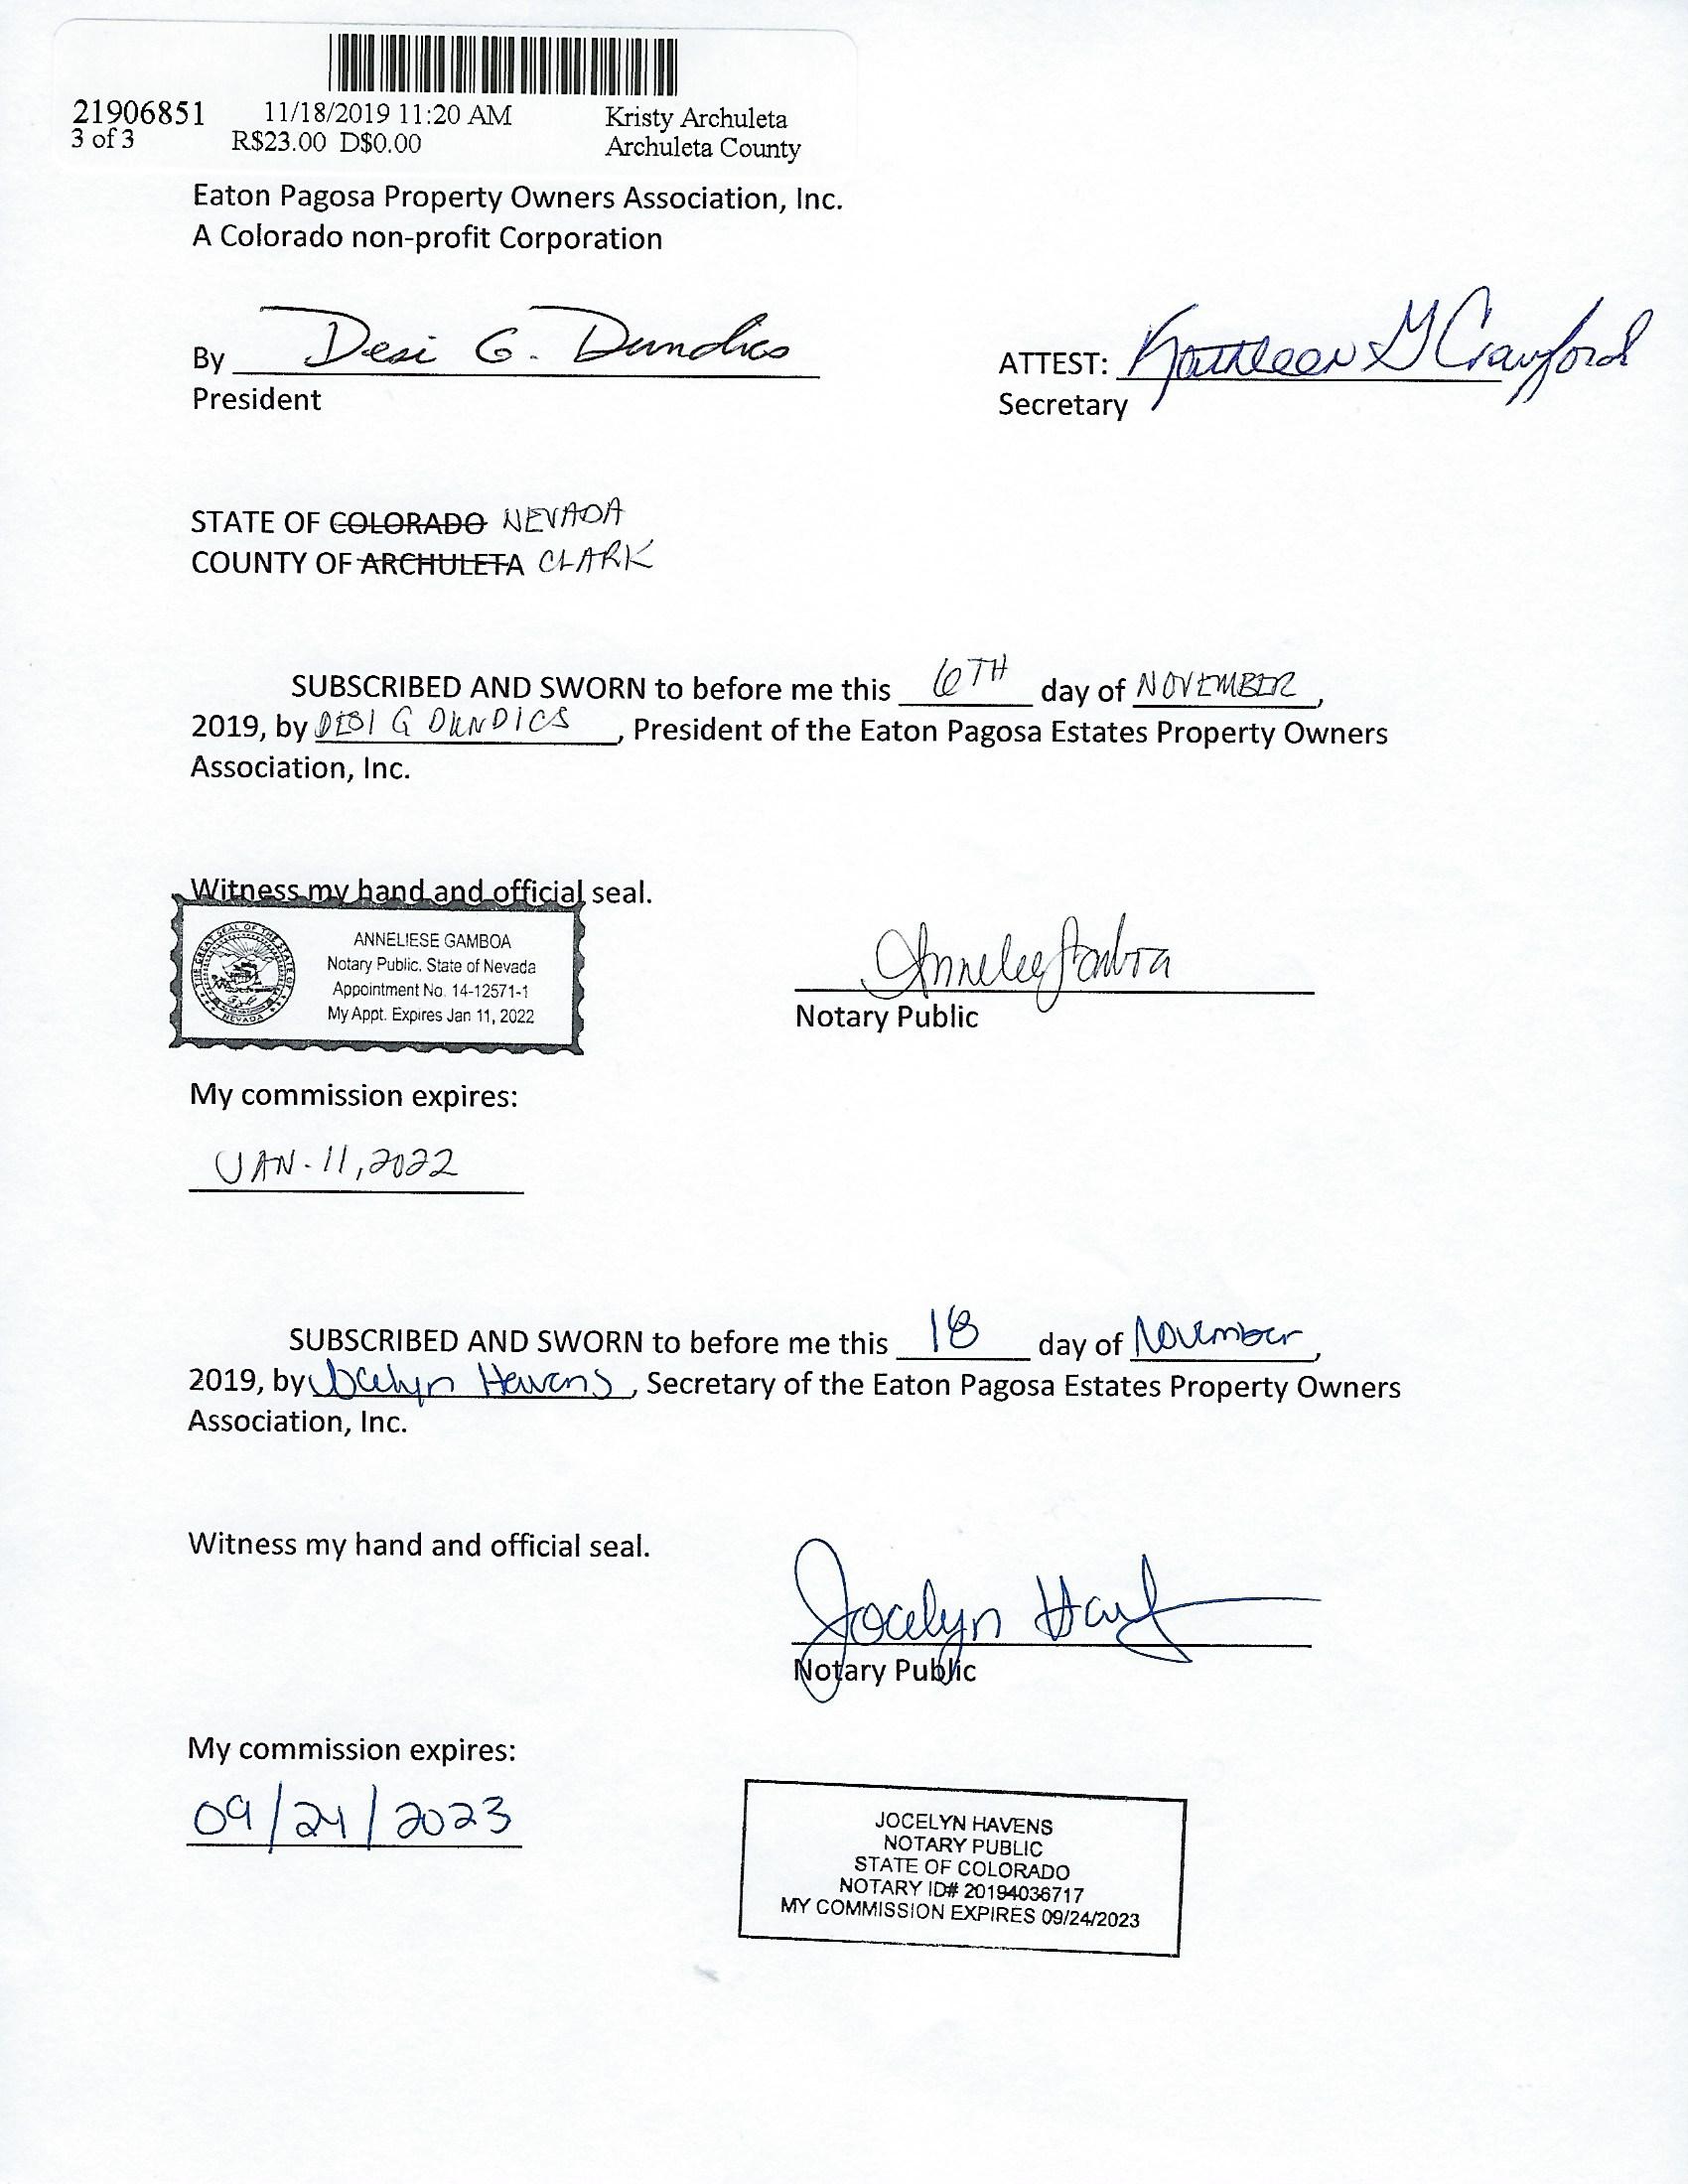 21906851 11/18/2019 11:20 AM Kristy Archuleta
3 of 3 R$23.00 D$0.00 Archuleta County
Eaton Pagosa Property Owners Association, Inc.
A Colorado non-profit Corporation
By Desi G. Dundics ATTEST: Kathleen G Crawford
President Secretary
STATE OF COLORADO NEVADA
COUNTY OF ARCHULETA CLARK
SUBSCRIBED AND SWORN to before me this 6TH day of NOVEMBER,
2019, by DESI G DUNDICS, President of the Eaton Pagosa Estates Property Owners
Association, Inc.
Witness my hand and official seal.
THE GREAT SEAL OF THE STATE OF NEVADA
ANNELIESE GAMBOA
Notary Public, State of Nevada
Appointment No. 14-12571-1
My Appt. Expires Jan 11, 2022
Notary Public
My commission expires:
JAN. 11, 2022
SUBSCRIBED AND SWORN to before me this 18 day of November,
2019, by Jocelyn Havens, Secretary of the Eaton Pagosa Estates Property Owners
Association, Inc.
Witness my hand and official seal.
Jocelyn
Notary Public
My commission expires:
09/24/2023
JOCELYN HAVENS
NOTARY PUBLIC
STATE OF COLORADO
NOTARY ID# 20194036717
MY COMMISSION EXPIRES 09/24/2023